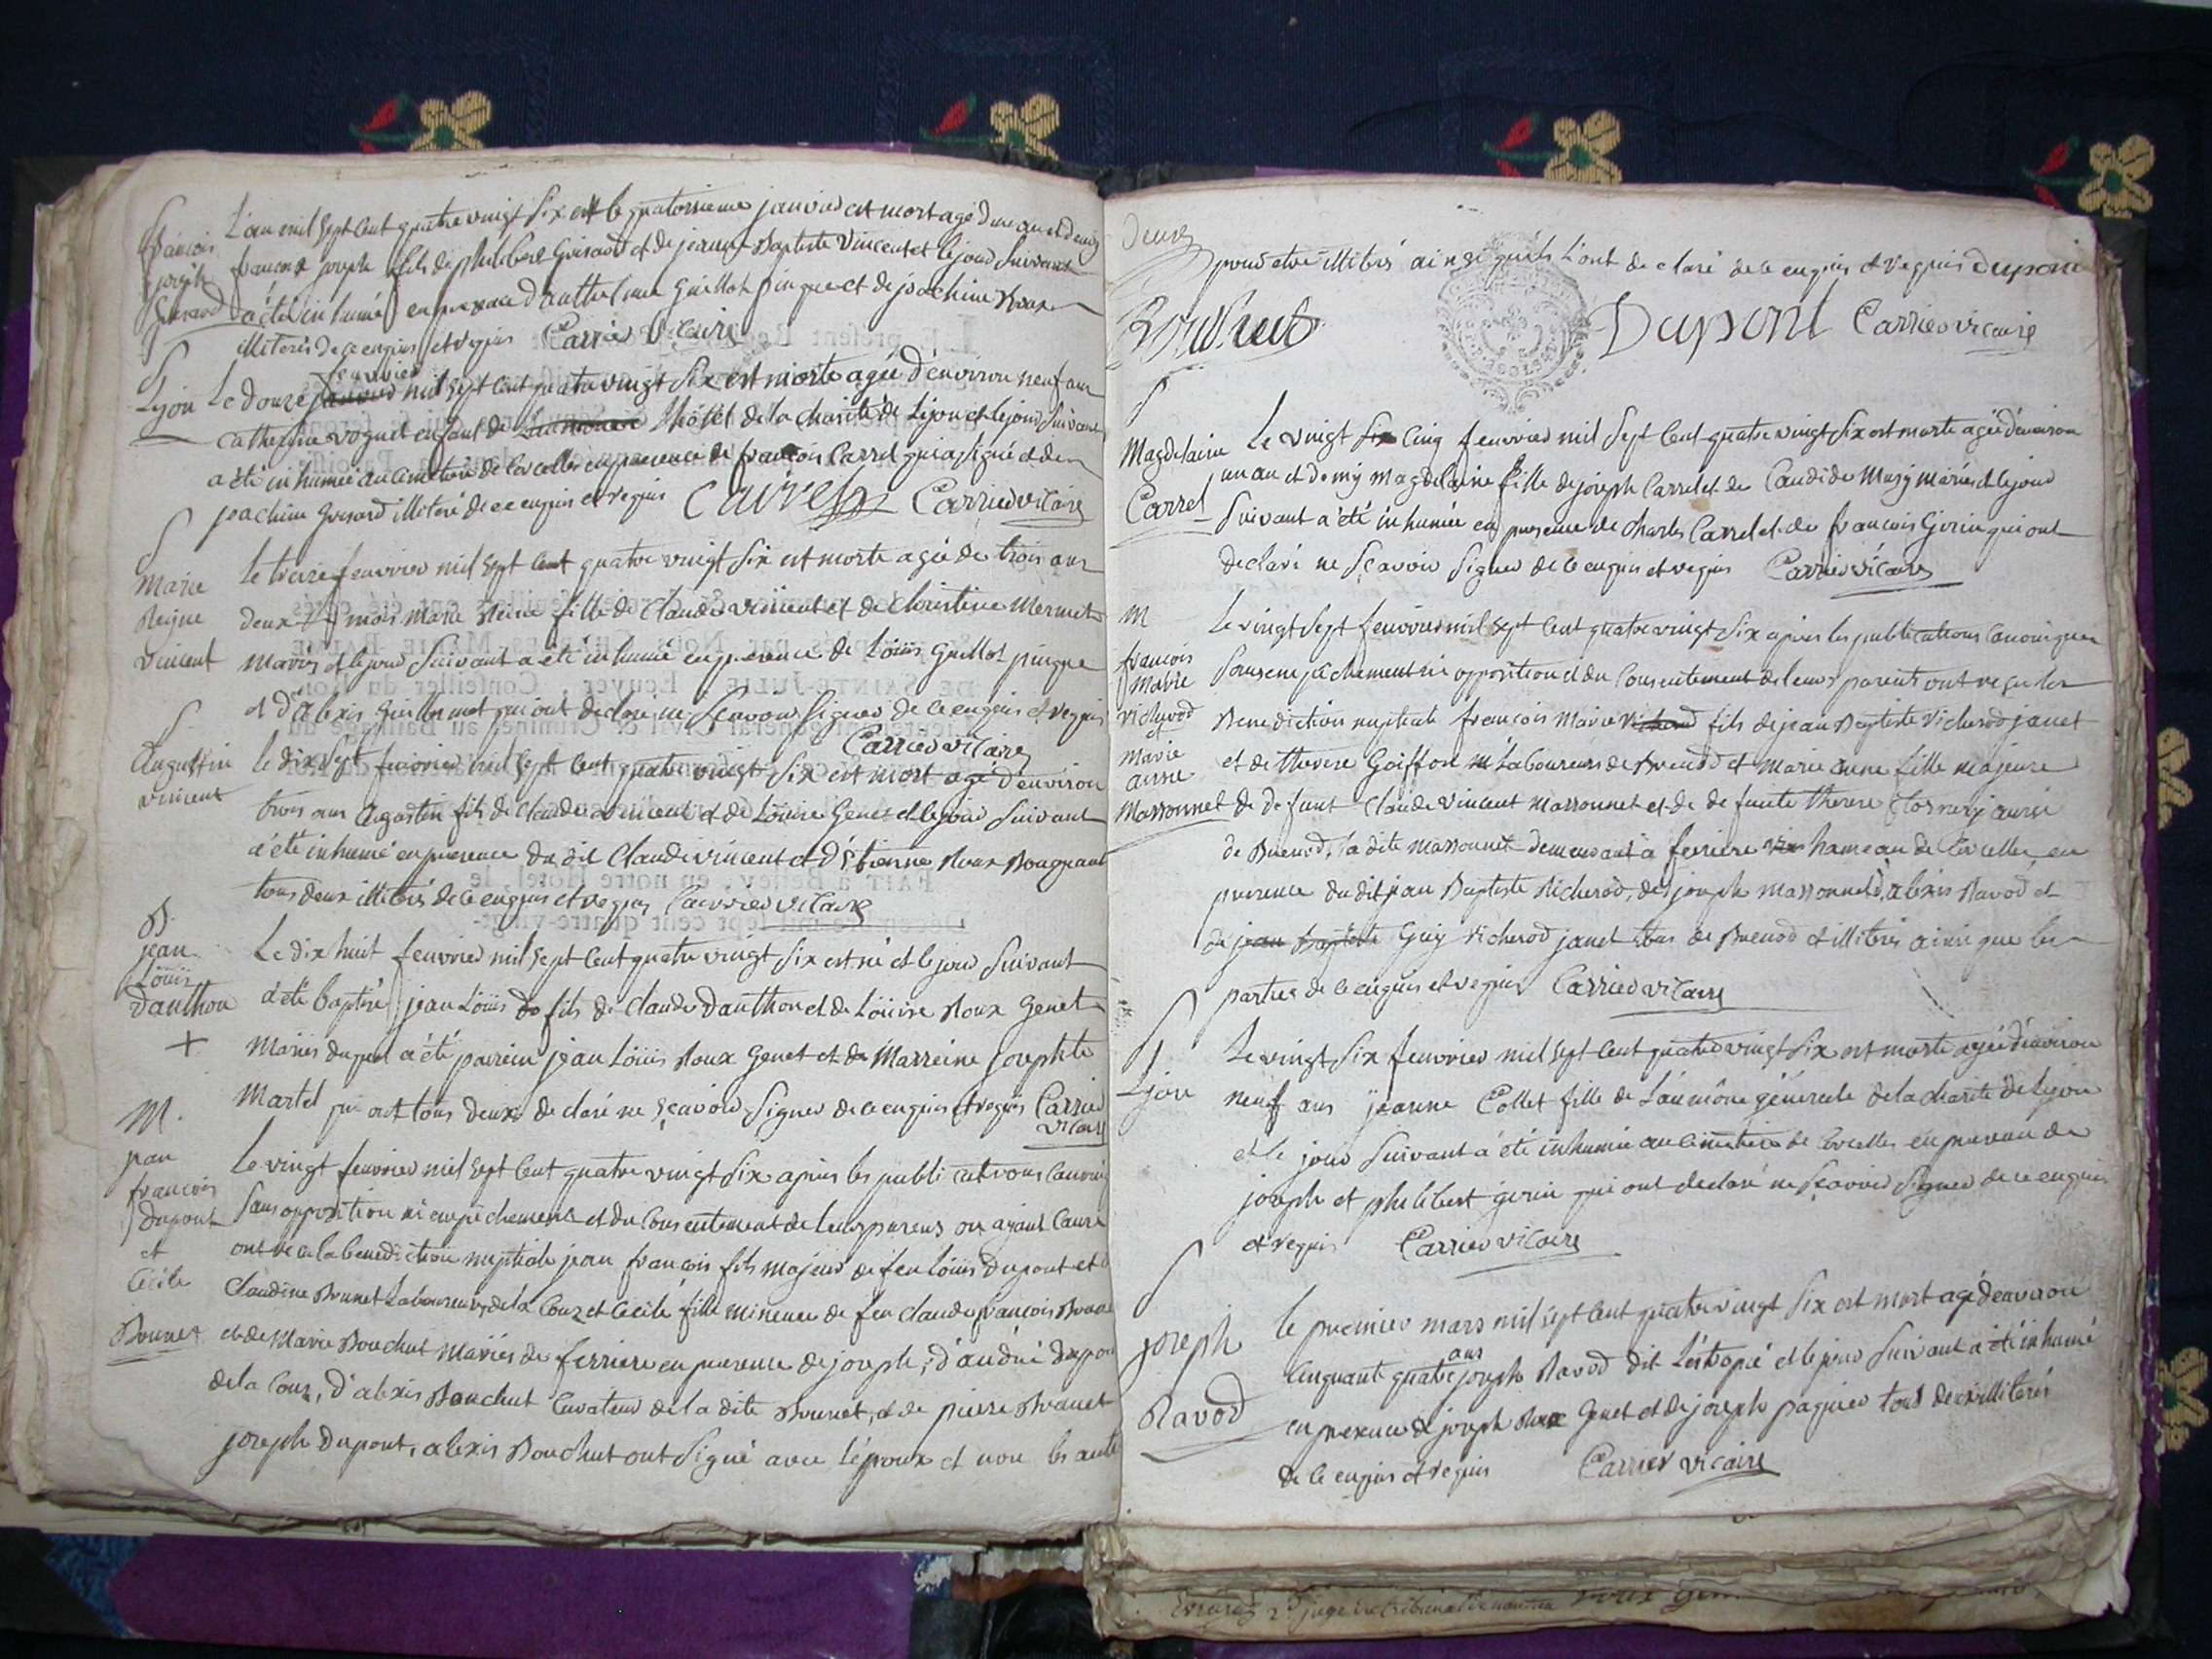 S
francois
joseph
Guerard
L'an mil sept cent quatre vingt six et le quatorsieme janvier est mort agé d'un an et demy
francois joseph fils de philibert Guerard et de jeanne Baptiste Vincent et le jour suivant
a été inhumé en presence d'anthelme Guillot pingue et de joachim Roux
illiterés de ce enquis et requis Carrier Vicaire
S
Lyon
fevrier
Le douze janvier mil sept cent quatre vingt six est morte agée d'environ neuf ans
catherine voguet enfant de l'aumone l'hôtel de la charité de Lyon et le jour suivant
a été inhumée au cimetiere de Corcelles en presence de francois Carrel qui a signé et de
joachim Guerard illiteré de ce enquis et requis Carrel Carrier vicaire
S
Marie
Reine
Vincent
Le treize feuvrier mil sept cent quatre vingt six est morte agée de trois ans
deux mois Marie Reine fille de Claude vincent et de Christine Mermet
mariés et le jour suivant a été inhumée en presence de Loüis Guillot pingue
et d'alexis Guillermet qui ont declaré ne sçavoir signer de ce enquis et requis
Carrier vicaire
S
Augustin
vincent
Le dix sept feuvrier mil sept cent quatre vingt six est mort agé d'environ
trois ans Agostin fils de Claude vincent et de Loüise Genet et le jour suivant
a été inhumé en presence du dit Claude vincent et d'Etienne Roux Bougnant
tous deux illiterés de ce enquis et requis Carrier vicaire
B
jean
Loüis
Danthon
+
Le dix huit feuvrier mil sept cent quatre vingt six est né et le jour suivant
a été baptisé jean Loüis fils de Claude Danthon et de Loüise Roux Genet
mariés duquel a été parrein jean Loüis Roux Genet et Marreine josephte
Martel qui ont tous deux declaré ne sçavoir signer de ce enquis et requis Carrier
vicaire
M.
jean
francois
dupont
et
Cécile
Brunet
Le vingt feuvrier mil sept cent quatre vingt six après les publications
sans opposition ni empechement et du consentement de leurs parens ou ayant cause
ont recu la benediction nuptiale jean francois fils majeur de feu Loüis dupont et
Claudine Brunet Laboureurs de la Couz et Cécile fille mineure de feu Claude francois Brunet
et de Marie Bouchut mariés de ferriere en presence de joseph, d'andré dupont
de la Couz, d'alexis Bouchut Curateur de la dite Brunet, et de pierre Brunet
joseph dupont, alexis Bouchut ont signé avec l'époux et non les autres
Deux
pour etre illiterés ainsi qu'ils l'ont declaré de ce enquis et requis dupont
Bouchut Dupont Carrier vicaire
S
Magdelaine
Carrel
Le vingt cinq feuvrier mil sept cent quatre vingt six est morte agée d'environ
un an et demy magdelaine fille de joseph Carrel et de Candide Musy mariés et le jour
suivant a été inhumée en presence de Charles Carrel et de francois Gerin qui ont
declaré ne sçavoir signer de ce enquis et requis Carrier vicaire
M
francois
Marie
Vicherod
et
Marie
anne
Massonnet
Le vingt sept feuvrier mil sept cent quatre vingt six après les publications canoniques
sans empechement ni opposition et du consentement de leurs parents ont reçu la
Benediction nuptiale francois Marie fils de jean Baptiste Vicherod janet
et de therese Goiffon Laboureurs de Brenod et Marie anne fille majeure
de defunt Claude vincent Massonnet et de defunte therese aussi
de Brenod, la dite massonnet demeurant a ferriere hameau de Corcelles en
presence du dit jean Baptiste Vicherod, de joseph massonnet, alexis Ravod et
de jean baptiste Guy Vicherod janet tous de Brenod et illiterés ainsi que les
parties de ce enquis et requis Carrier vicaire
S
Lyon
Le vingt six feuvrier mil sept cent quatre vingt six est morte agée d'environ
neuf ans jeanne Collet fille de L'aumône générale de la charité de Lyon
et le jour suivant a été inhumée au cimetiere de Corcelles en presence de
joseph et philibert gerin qui ont declaré ne sçavoir signer de ce enquis
et requis Carrier vicaire
S
joseph
Ravod
Le premier mars mil sept cent quatre vingt six est mort agé d'environ
cinquante quatre ans joseph Ravod dit L'estropié et le jour suivant a été inhumé
en presence de joseph Roux Genet et de joseph pagnier tous deux illiterés
de ce enquis et requis Carrier vicaire